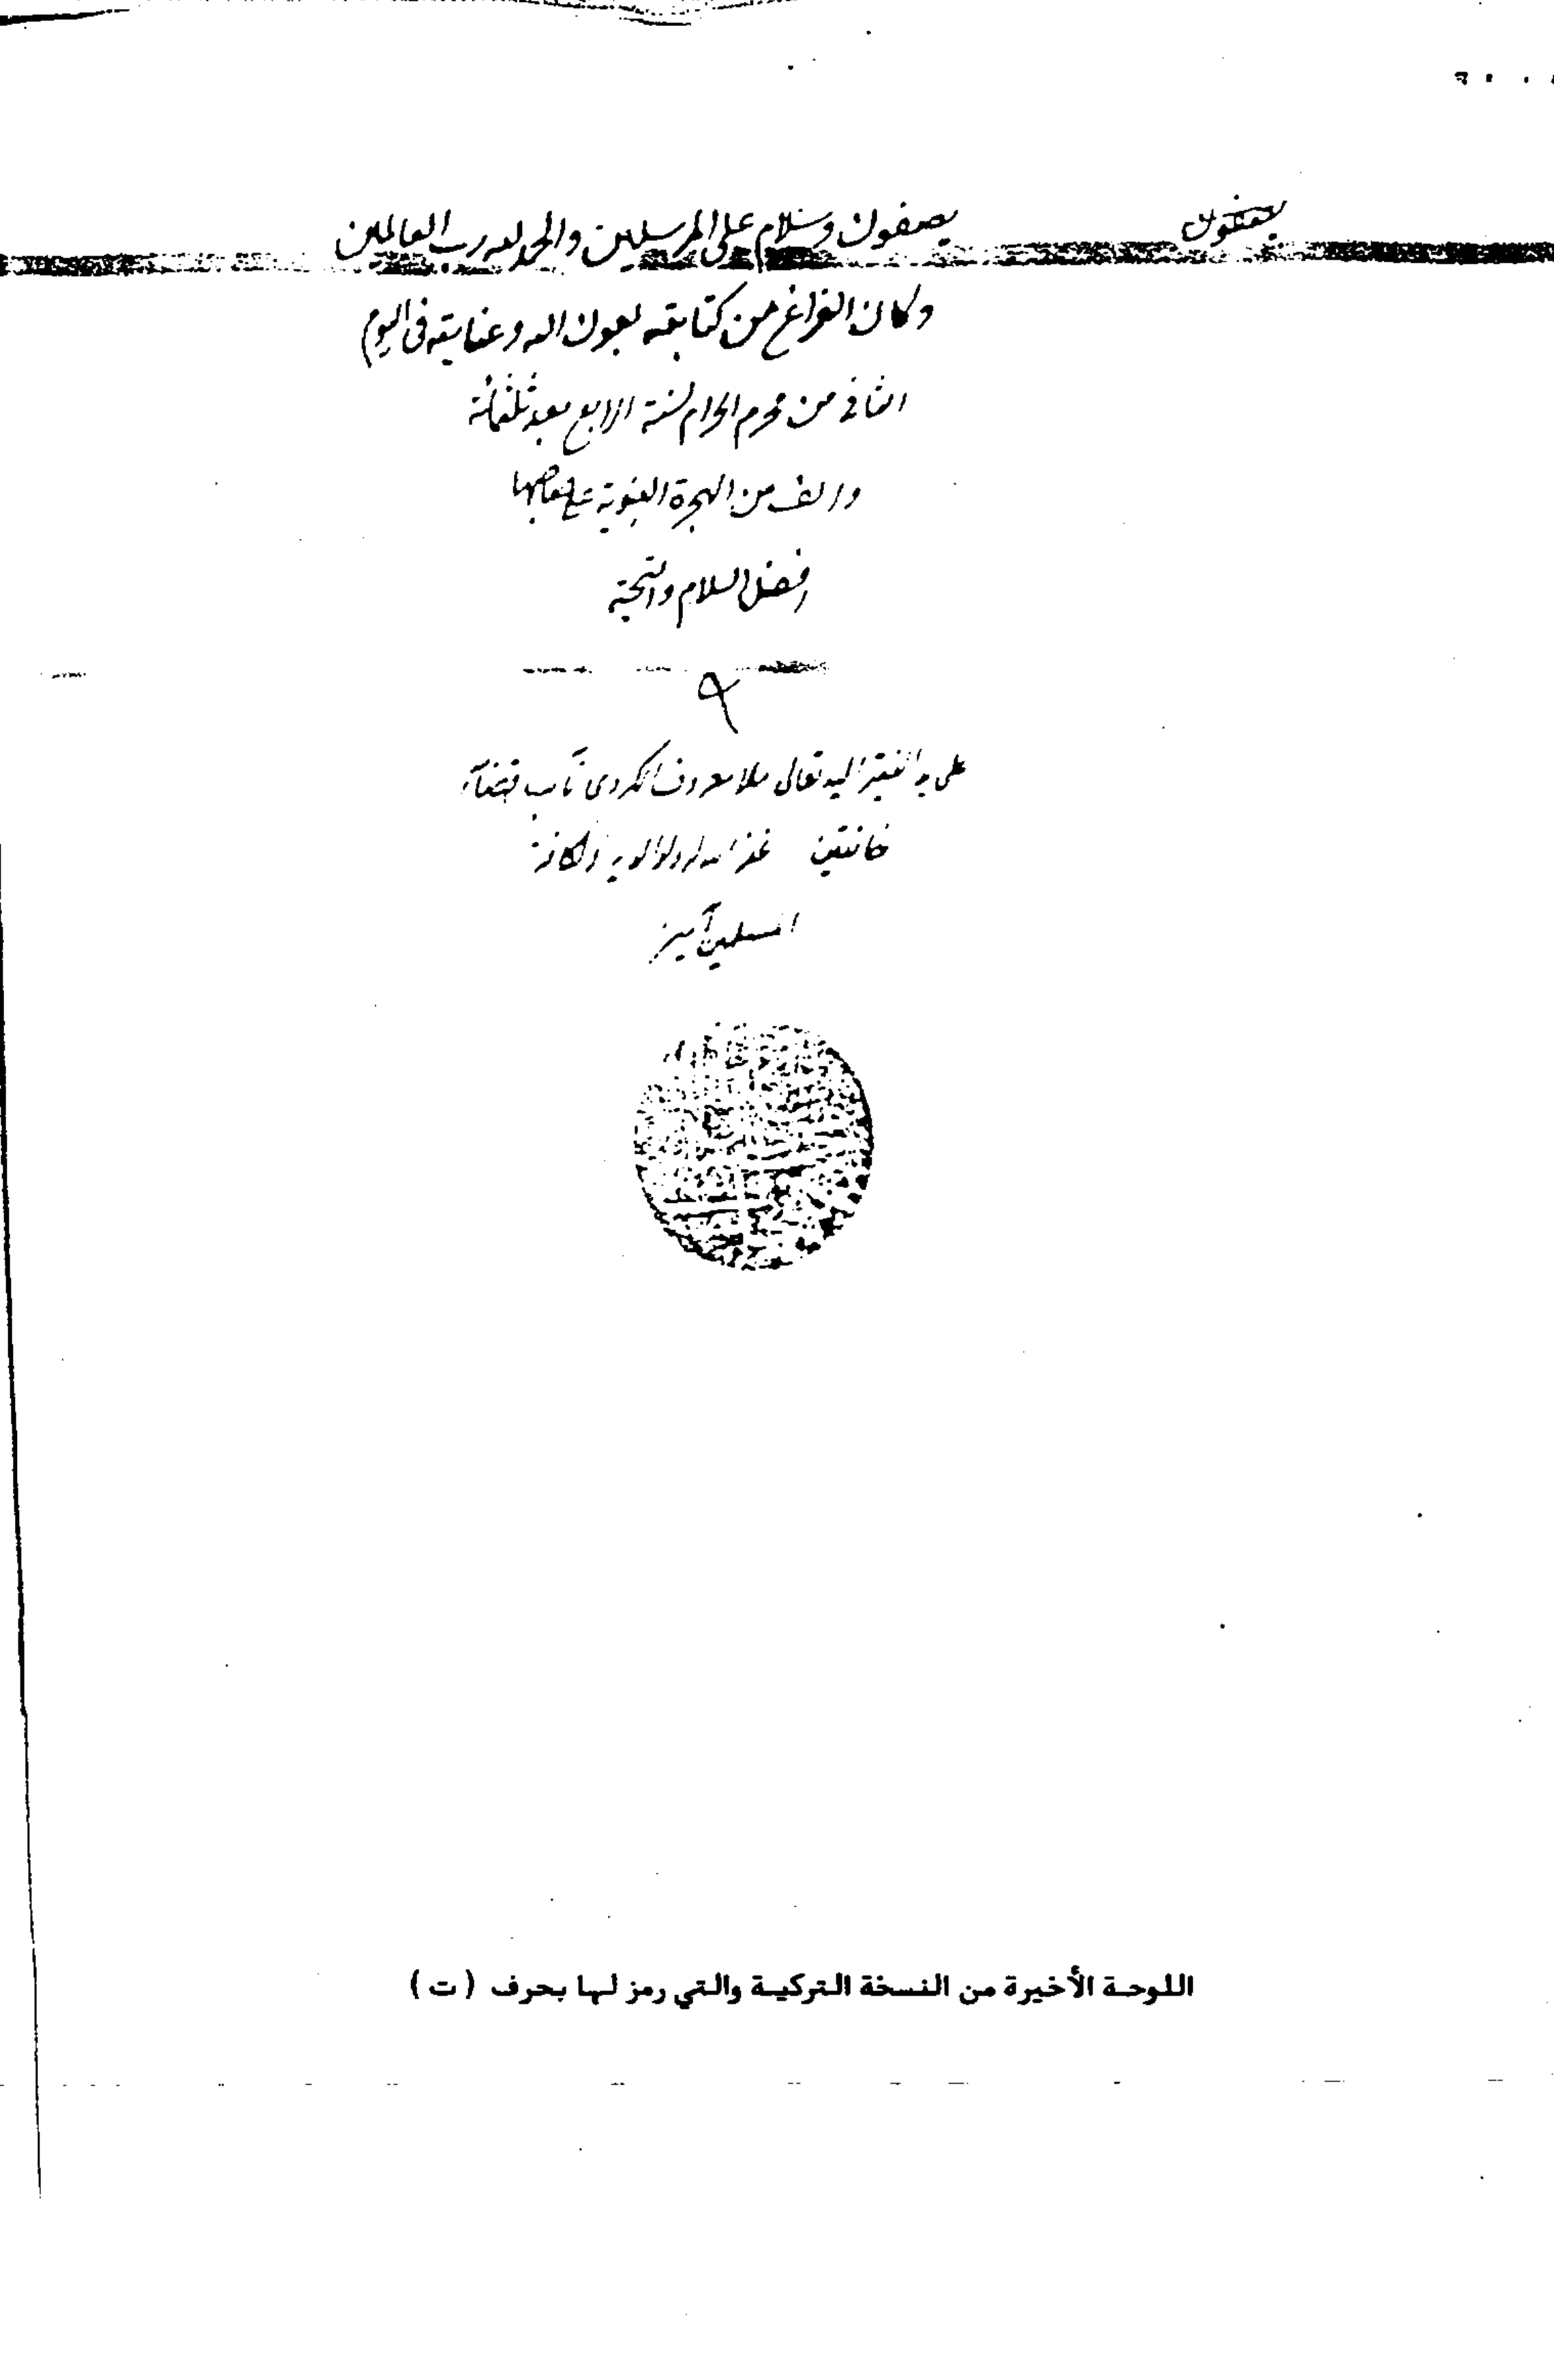 يصفون
يصفون وسلام على المرسلين والحمد لله رب العالمين
وكان الفراغ من كتابته بعون الله وعنايته في اليوم
الثاني من محرم الحرام لسنة الرابع بعد ثلثمائة
والف من الهجرة النبوية على صاحبها
افضل السلام والتحية
على يد الفقير اليه تعالى ملا معروف الكردى نائب قضآء
خانقين غفر الله له ولوالديه ولكافة
المسلمين آمين
اللوحة الأخيرة من النسخة التركية والتي رمز لها بحرف ( ت )